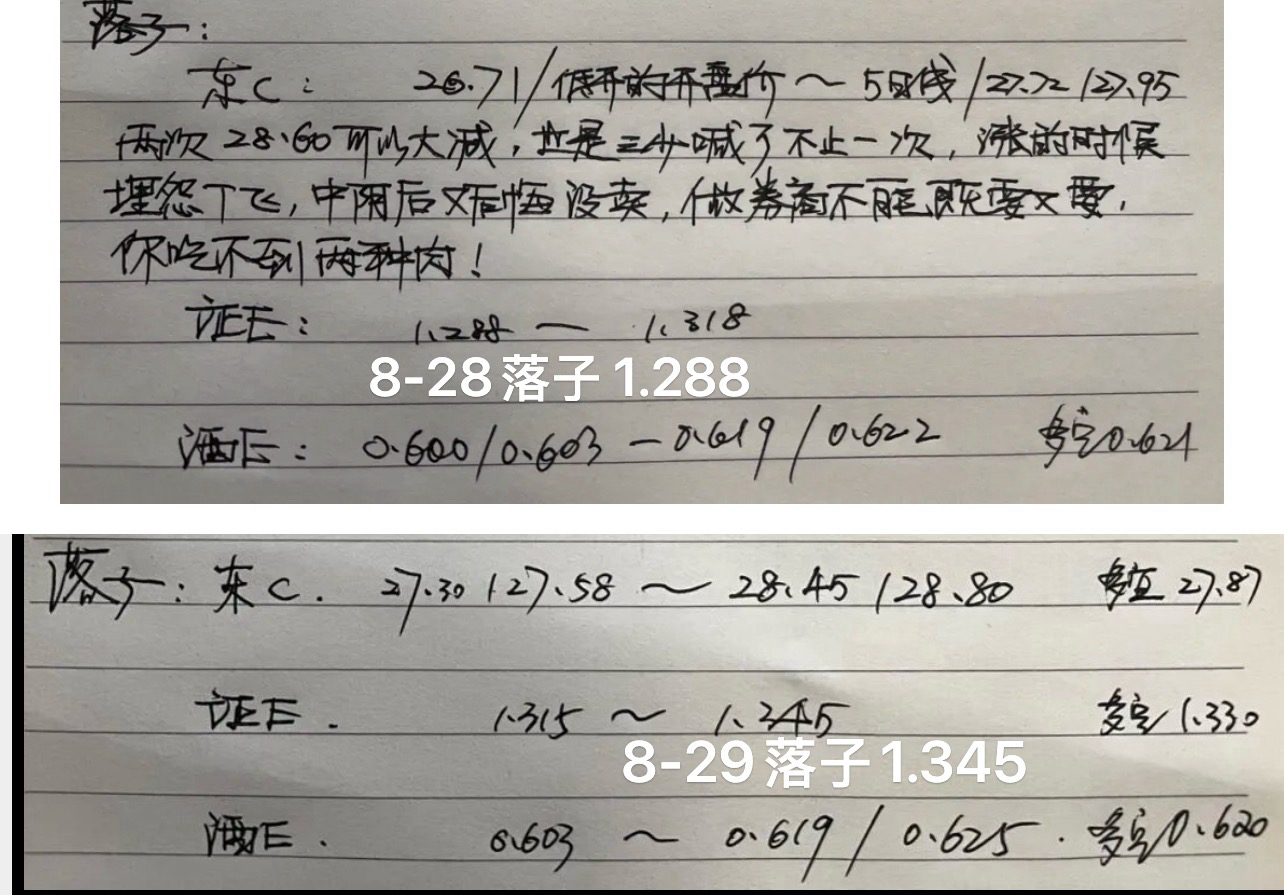 落子:
东C: 26.71/低开的开盘价~5日线/27.72/27.95
两次28.60可以大减,也是三少喊了不止一次,涨的时候
埋怨T飞,中阴后又后悔没卖,做券商不能既要又要,
你吃不到两种肉!
证E: 1.288 — 1.318
8-28落子1.288
酒E: 0.600/0.603 — 0.619/0.622 多空0.621
落子: 东C. 27.30/27.58 ~ 28.45/28.80 多空27.87
证E. 1.315 ~ 1.345 多空1.330
8-29落子1.345
酒E. 0.603 ~ 0.619/0.625. 多空0.620